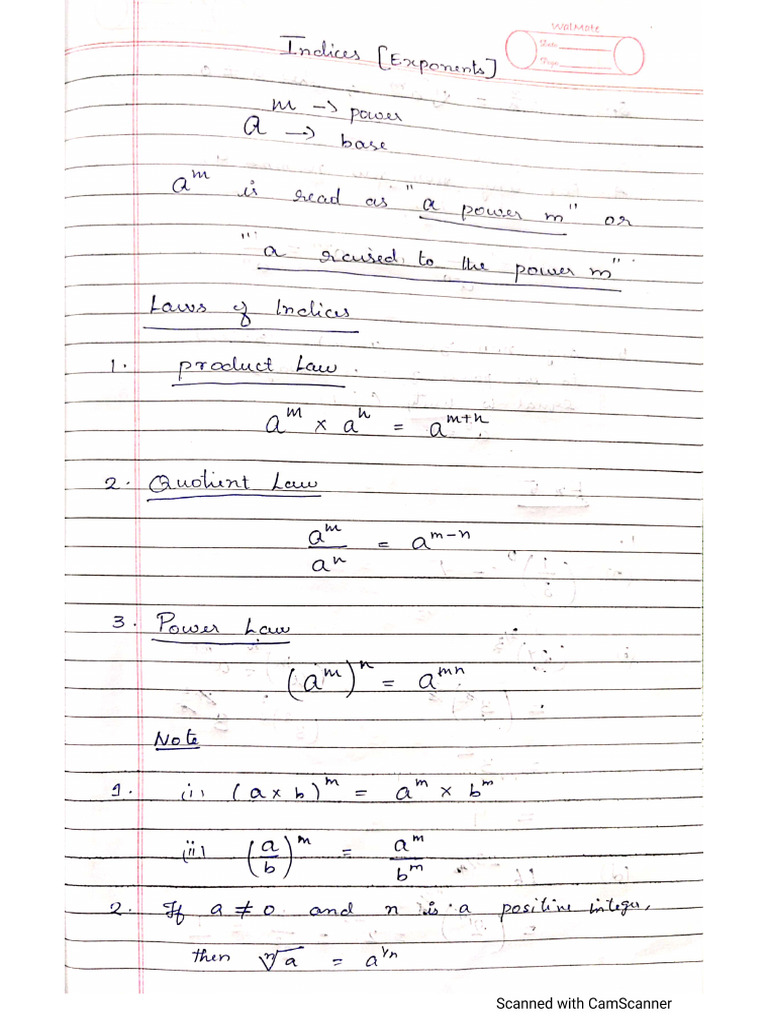 WalMate
Date
Page
Indices [Exponents]
a^m → power
→ base
a^m is read as "a power m" or
"a raised to the power m"
Laws of Indices
1. product Law
a^m × a^n = a^(m+n)
2. Quotient Law
a^m / a^n = a^(m-n)
3. Power Law
(a^m)^n = a^(mn)
Note
1. (i) (a × b)^m = a^m × b^m
(ii) (a/b)^m = a^m / b^m
2. If a ≠ 0 and n is a positive integer,
then ⁿ√a = a^(1/n)
Scanned with CamScanner